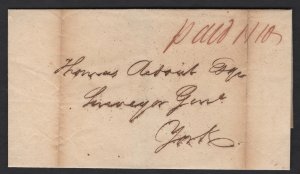 Paid
Thomas Ridout Esqr
Surveyor Genl
York